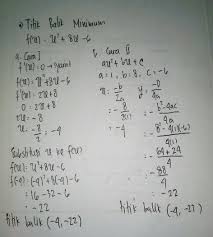 → Titik Balik Minimum
f(x) = x² + 8x - 6
a. Cara I
f'(x) = 0 →
f(x) = x² + 8x - 6
f'(x) = 2x + 8
0 = 2x + 8
2x = -8
x = -8/2 = -4
Substitusi x ke f(x)
f(x) = x² + 8x - 6
f(-4) = (-4)² + 8(-4) - 6
= 16 - 32 - 6
= -22
titik balik (-4, -22)
b. Cara II
ax² + bx + c
a = 1, b = 8, c = -6
x = -b/2a
= -8/2(1)
= -4
y = -D/4a
= -b² - 4ac/4(a)
= -8² - 4(1)(-6)/4(1)
= -64 + 24/4
= -88/4
= -22
titik balik (-4, -22)